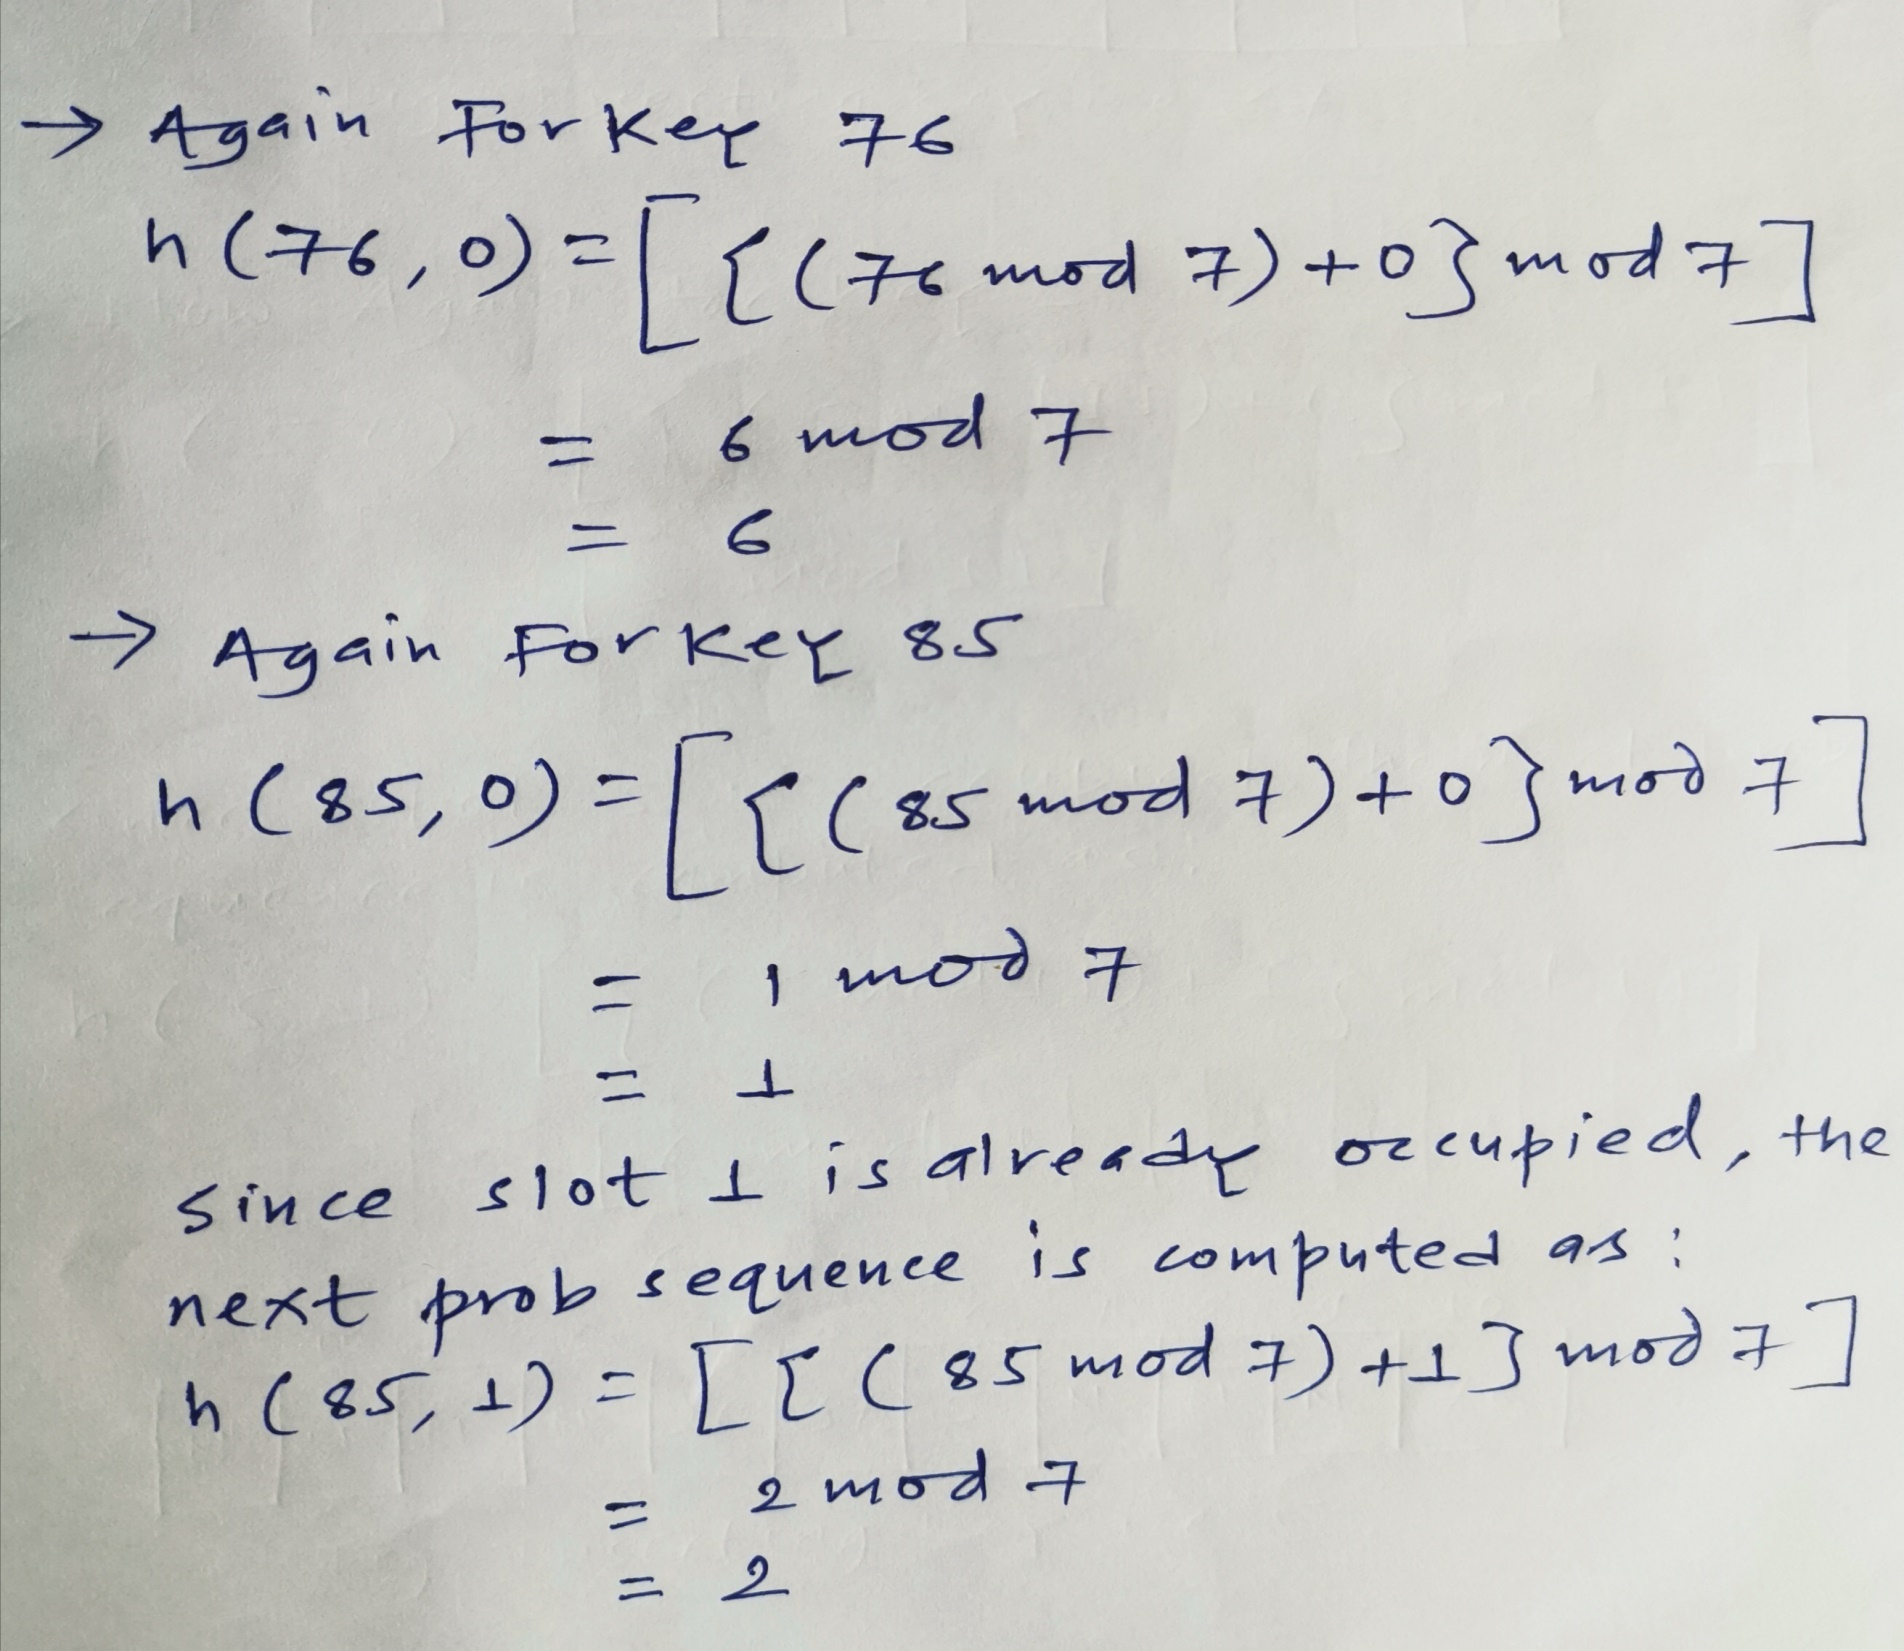 → Again For Key 76
h(76,0)=[{(76 mod 7)+0}mod 7]
= 6 mod 7
= 6
→ Again For Key 85
h(85,0)=[{(85 mod 7)+0}mod 7]
= 1 mod 7
= 1
since slot 1 is already occupied, the
next prob sequence is computed as:
h(85,1)=[{(85 mod 7)+1}mod 7]
= 2 mod 7
= 2